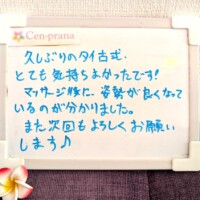 Cen-prana
久しぶりのタイ古式、
とても気持ちよかったです!
マッサージ後に、姿勢が良くなって
いるのが分かりました。
また次回もよろしくお願い
します♪